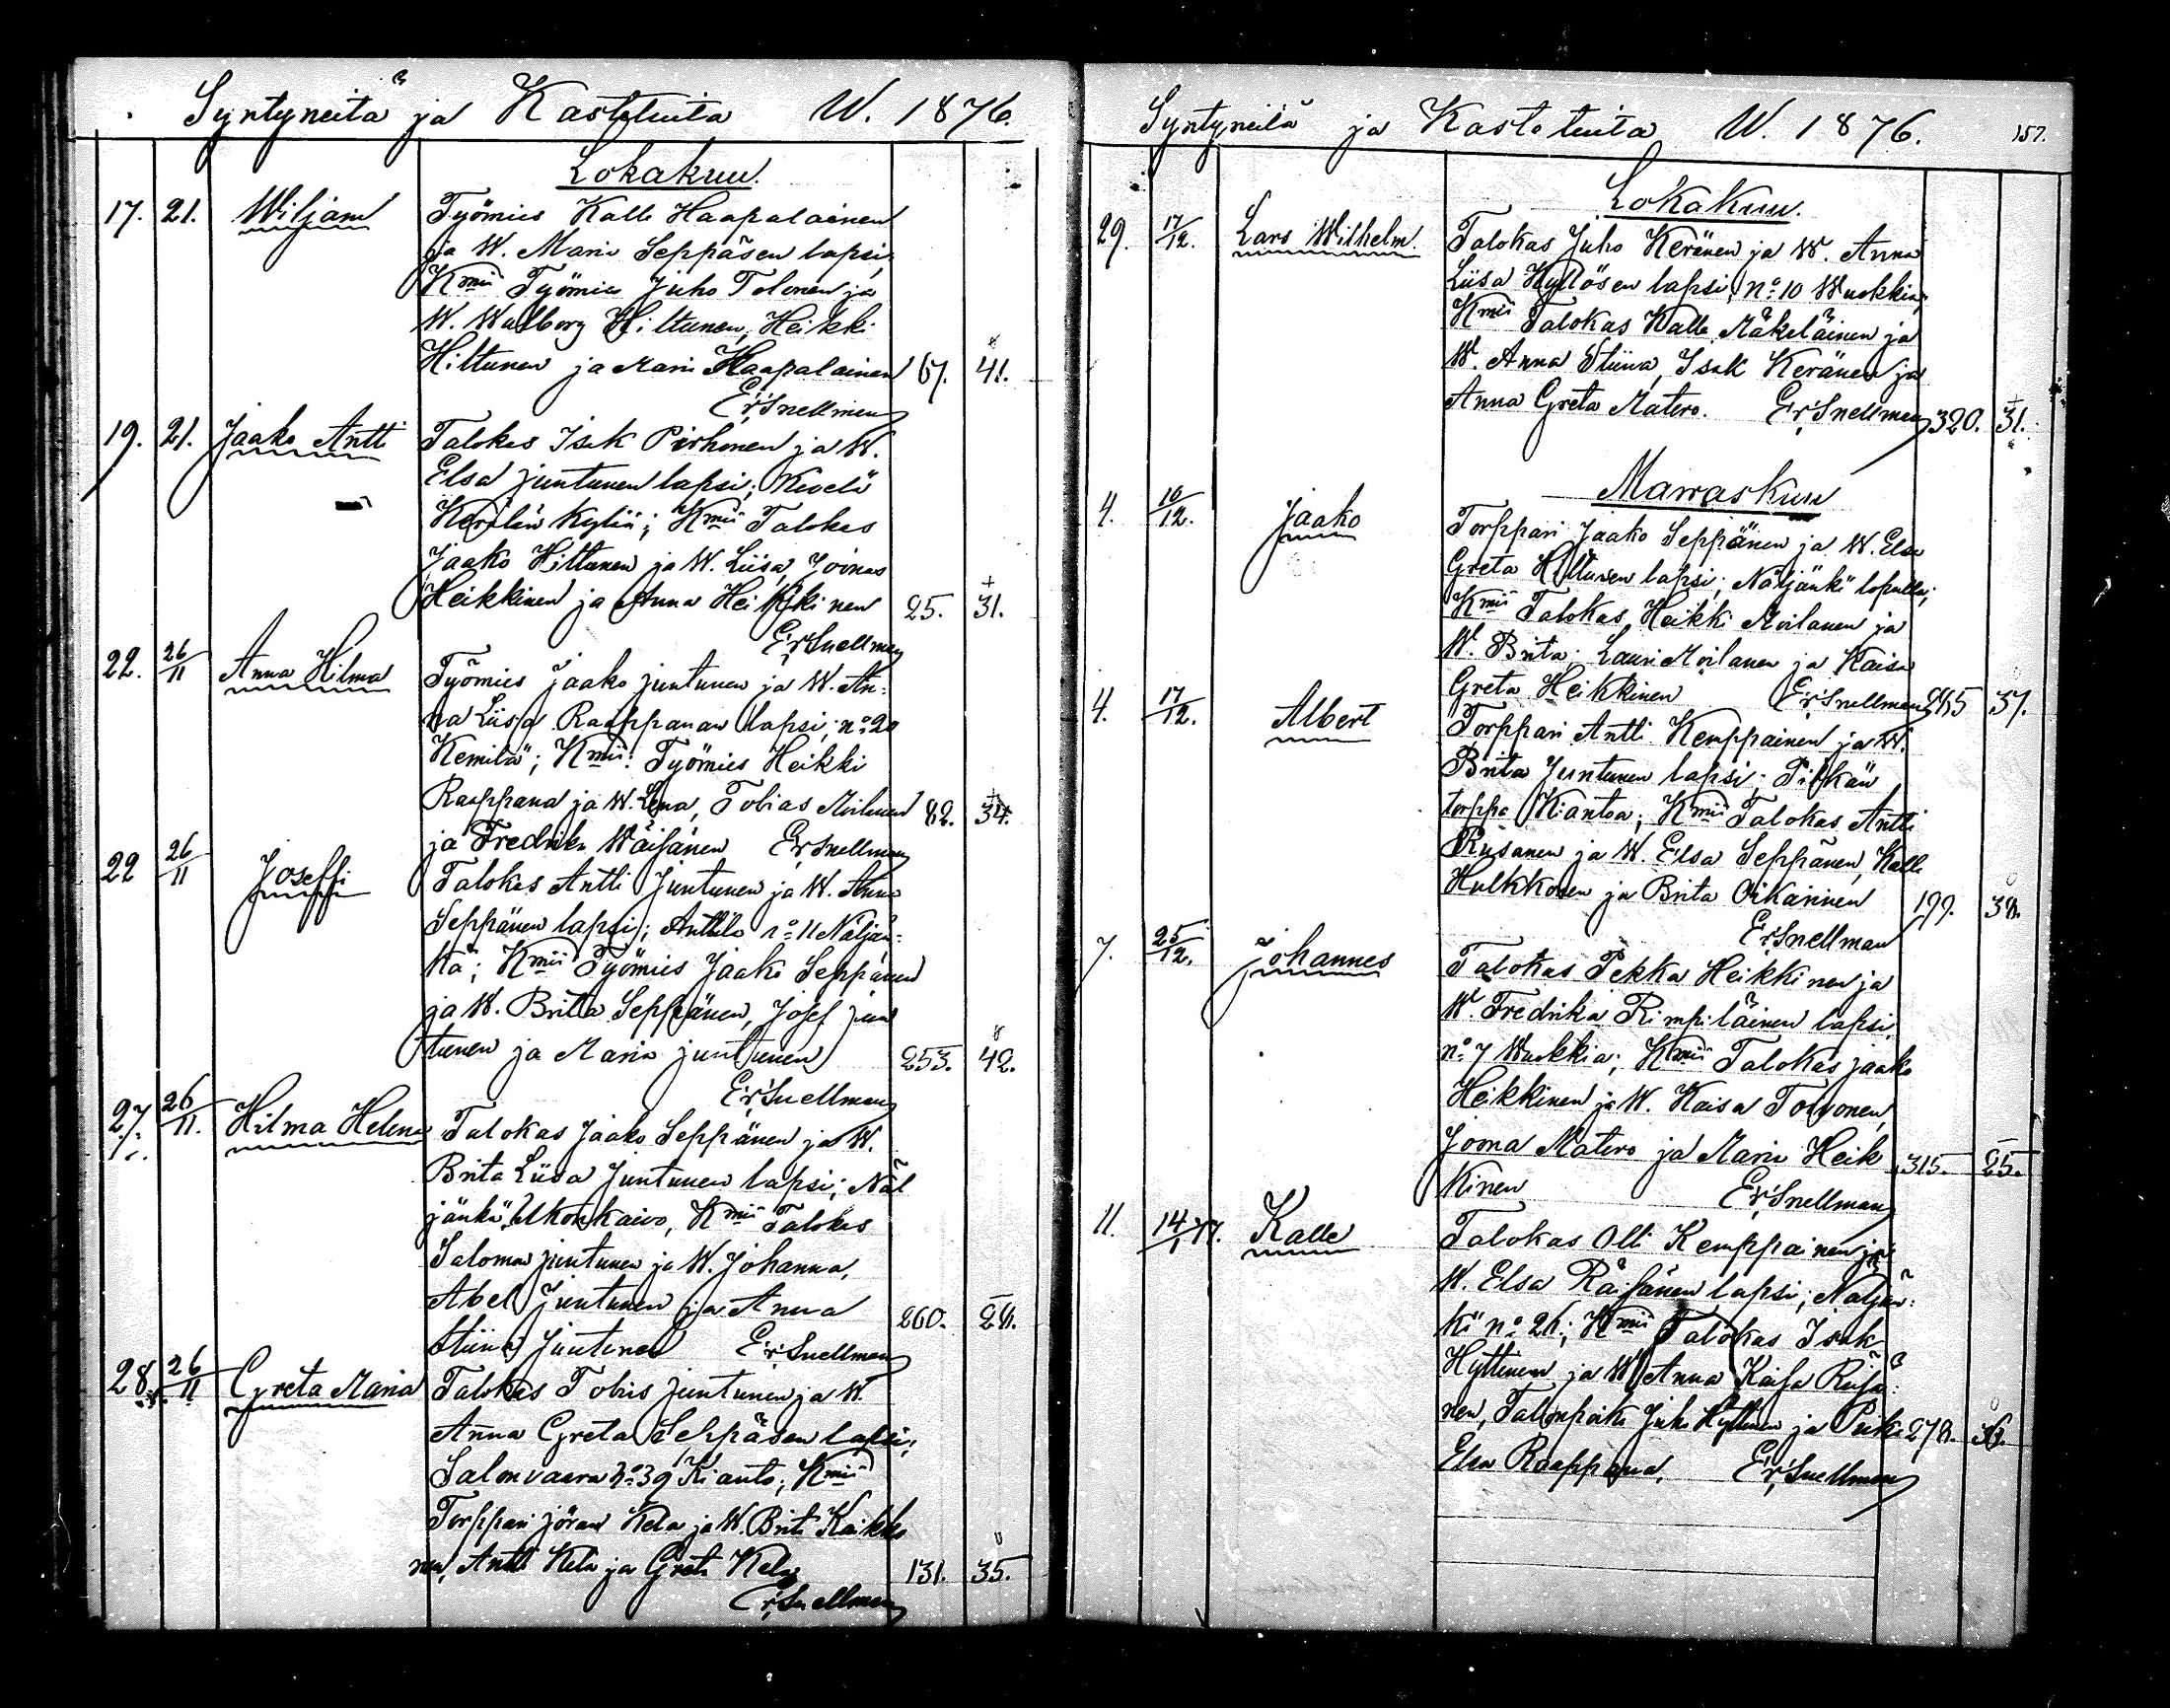 Syntyneitä ja Kastetuita W. 1876.
Lokakuu.
17. 21. Wiljam Työmies Kalle Haapalainen
ja W. Maria Seppäsen lapsi;
Kmii Työmies Juho Tolonen ja
W. Walborg Hiltunen, Heikki
Hiltunen ja Maria Haapalainen 67. 41.
Er. Snellman
19. 21. Jaako Antti Talokas Isak Pirhonen ja W.
Elsa Juntunen lapsi;
Kerälän Kylää; Kmii Talokas
Jaako Hiltunen ja W. Liisa, Joonas
Heikkinen ja Anna Heikkinen 25. 31.
Er. Snellman
22. 26/11 Anna Hilma Työmies Jaako Juntunen ja W. An-
na Liisa Raappanan lapsi; no 20
Kemilä; Kmii: Työmies Heikki
Raappana ja W. Lena, Tobias Moilanen 82. 34.
ja Fredrika Wäisänen Er. Snellman
22 26/11 Joseffi Talokas Antti Juntunen ja W. Anna
Seppänen lapsi; Anttila no 11 Näljän-
kä; Kmii Työmies Jaako Seppänen
ja W. Brita Seppänen, Josef Jun
tunen ja Maria Juntunen 253. 42.
Er. Snellman
27. 26/11. Hilma Helena Talokas Jaako Seppänen ja W.
Brita Liisa Juntunen lapsi; Näl
jänkä, Ukonkaivo, Kmii Talokas
Saloman Juntunen ja W. Johanna,
Abel Juntunen ja Anna 260. 28.
Stiina Juntunen Er. Snellman
28. 26/11 Greta Maria Talokas Tobias Juntunen ja W.
Anna Greta Seppäsen lapsi;
Salonvaara no 39 Kianto; Kmii
Torppari Jöran Kela ja W. Brita Kaikko
nen, Antti Kela ja Greta Kela 131. 35.
Er. Snellman
Syntyneitä ja Kastetuita W. 1876. 157.
Lokakuu.
29. 17/12. Lars Wilhelm. Talokas Juho Keränen ja W. Anna
Liisa Kyllösen lapsi; no 10 Wuokkia;
Kmii Talokas Kalle Mäkeläinen ja
W. Anna Stiina, Isak Keränen ja
Anna Greta Matero. Er. Snellman 320. 31.
Marraskuu
4. 10/12. Jaako Torppari Jaako Seppänen ja W. Elsa
Greta Hiltunen lapsi; Näljänkä
Kmii Talokas Heikki Moilanen ja
W. Brita; Lauri Moilanen ja Kaisa
Greta Heikkinen Er. Snellman 37.
4. 17/12. Albert Torppari Antti Kemppainen ja W.
Brita Juntunen lapsi; Pitkän
torppa Kiantoa; Kmii Talokas Antti
Riisanen ja W. Elsa Seppänen, Kalle
Hulkkonen ja Brita Oikarinen 199. 38.
Er. Snellman
7. 25/12. Johannes Talokas Pekka Heikkinen ja
W. Fredrika Rimpiläinen lapsi,
no 7 Wuokkia; Kmii Talokas Jaako
Heikkinen ja W. Kaisa Tolvonen,
Joona Matero ja Maria Heik 315. 25.
kinen Er. Snellman
11. 14/1 77. Kalle Talokas Olli Kemppainen ja
W. Elsa Räisänen lapsi; Näljän-
kä no 26; Kmii Talokas Isak
Hyttinen ja W. Anna Kaisa Riisä-
nen, Talonpoika Juho Hyttinen ja Piika 278. 36.
Elsa Raappana. Er. Snellman